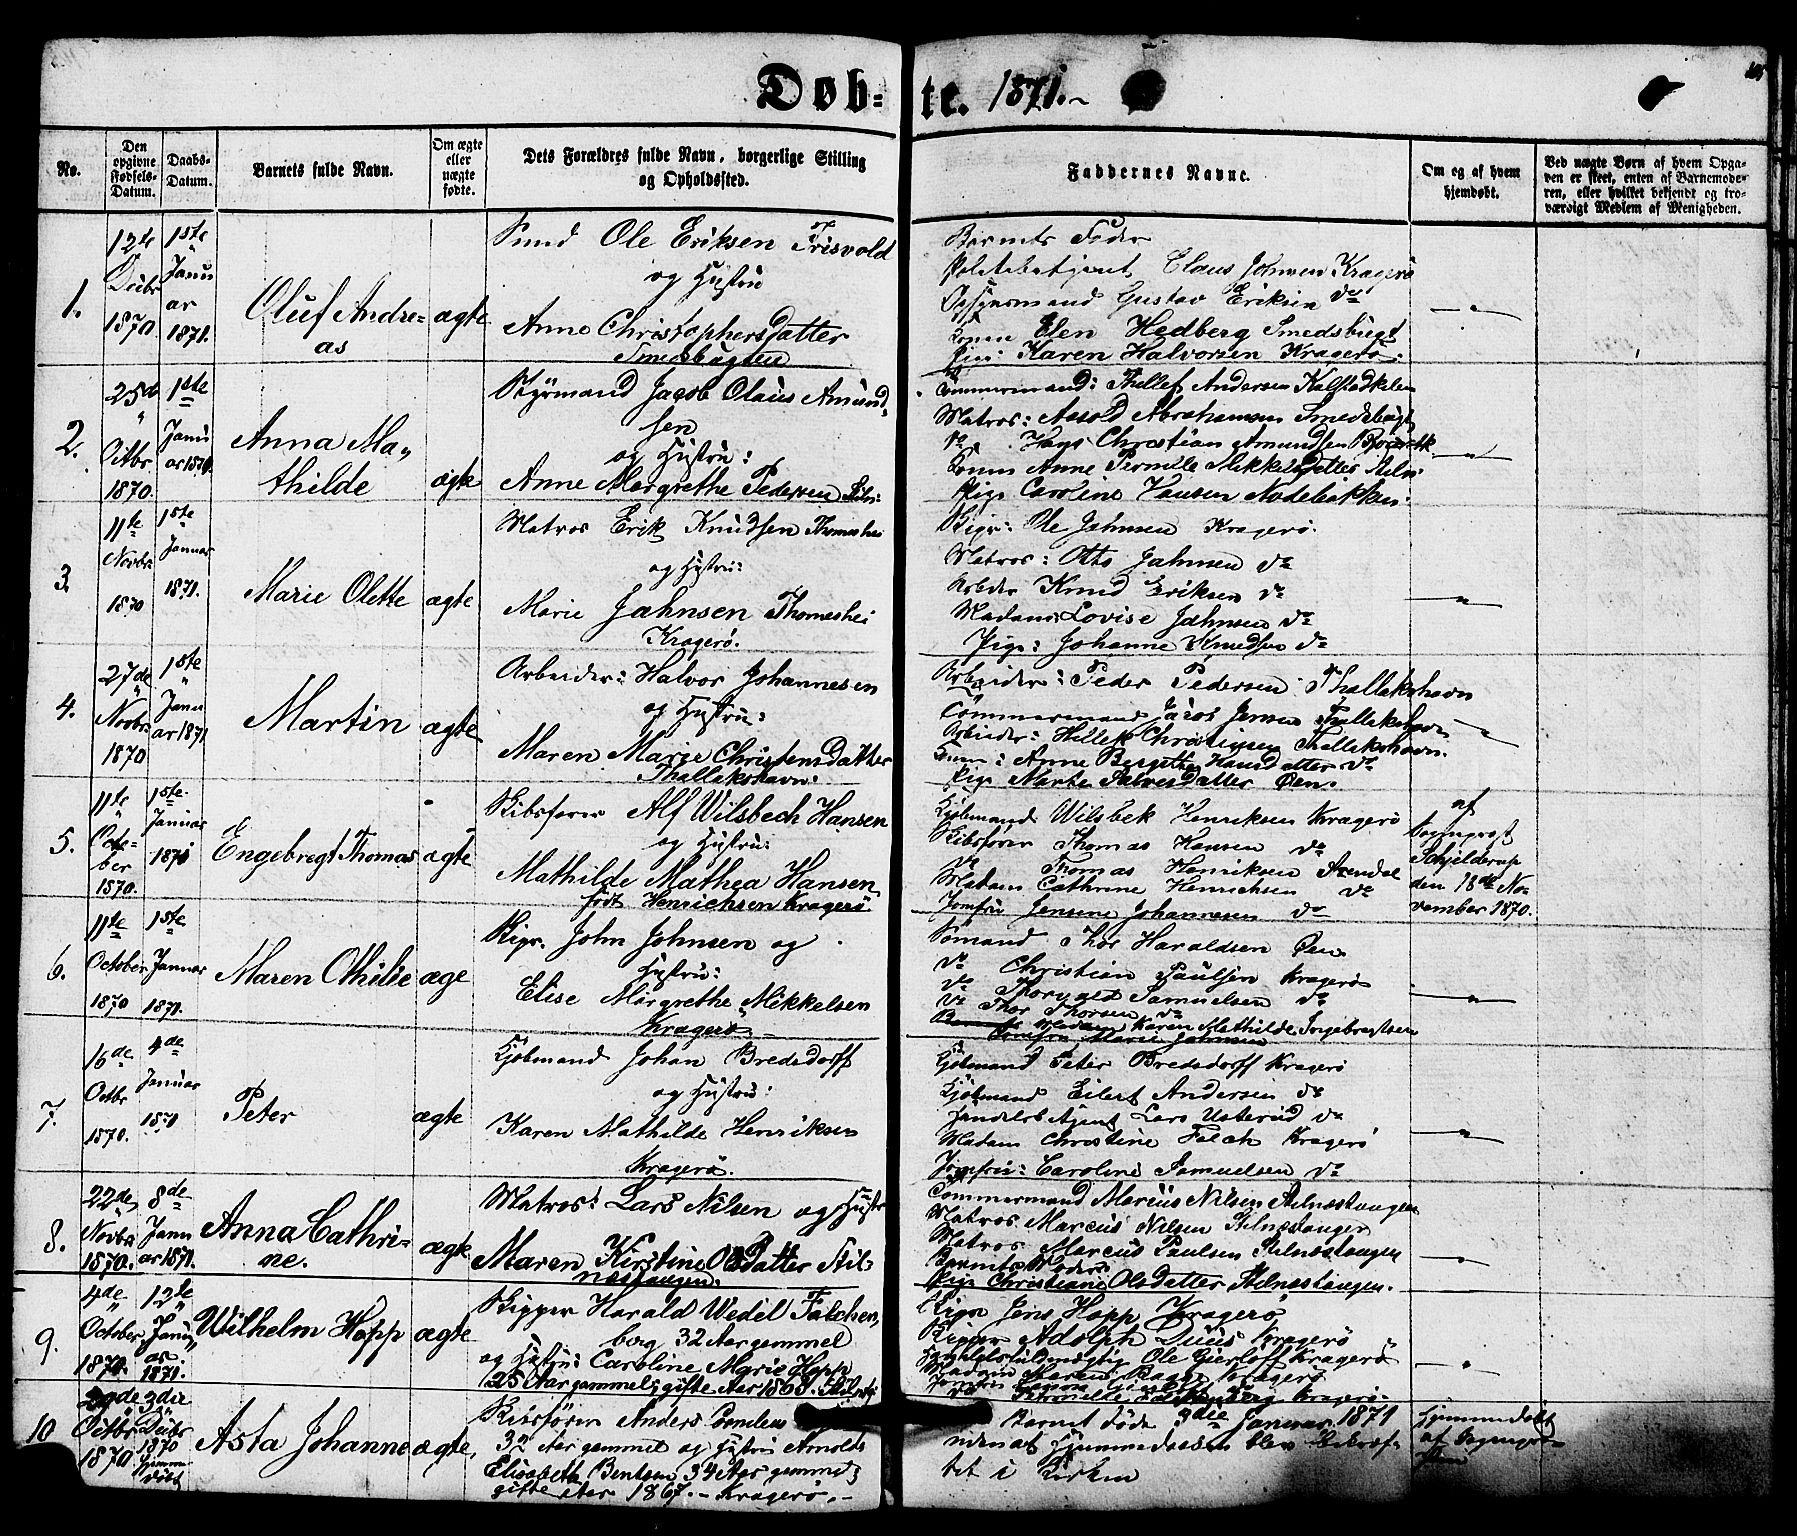 Døb-
te. 1871.
No.
Den opgivne Fødsels-Datum.
Daabs-Datum.
Barnets fulde Navn.
Om ægte eller uægte fødte.
Dets Forældres fulde Navn, borgerlige Stilling og Opholdssted.
Faddernes Navne.
Om og af hvem hjemdøbt.
Ved uægte Børn af hvem Opga-
ven er skeet, enten af Barnemode-
ren, eller hvilket bekjendt og tro-
værdigt Medlem af Menigheden.
1.
12te
1870.
1ste
Janu
ar
1871.
Oluf Andre=
as
ægte
Ole Eriksen Trisvold
og Hustru
Anne Christophersdatter
Smedsbugten
Barnets Fader
Politibetjent Claus Johnsen Kragerø
Opsynsmand Gustav Eriksen do
Konen Elen Hedberg Smedsbugt
Pige: Karen Halvorsen Kragerø.
2.
25de
Octbr.
1870.
1ste
Janu
ar 1870.
Anna Ma-
thilde
ægte
Styrmand Jacob Olaus Amund-
sen
og Hustru:
Anne Margrethe Pedersen
Tømmermand: Thellef Andersen
Matros: Abrahamsen Smedsbugt
do Hans Christian Amundsen
Konen Anne Pernille Mikkelsdatter
Pige Caroline Hansen Nodebakken.
3.
11te
Novbr.
1870
1ste
Januar
1871.
Marie Olette
ægte
Matros Erik Knudsen Thomeshei
og Hustru:
Marie Jahnsen Thomeshei
Kragerø.
Ole Jahnsen Kragerø.
Matros: Jahnsen do
Arbeider Knud Eriksen do
Madam: Lovise Jahnsen do
Pige: Johanne Knudsen do
4.
27de
Novbr.
1870
1ste
Janu
ar 1871
Martin
ægte
Arbeider: Halvor Johannesen
og Hustru:
Maren Marie Christensdatter
Thellekshavn.
Arbeider: Peder Pedersen Thellekshavn
Tømmermand Jacob Jensen Thellekshavn
Arbeider: Hellek Christensen Thellekshavn.
Anne Bergithe Hansdatter do
Pige Marte Salvesdatter Øen.
5.
11te
Octo-
ber
1870.
1ste
Januar
1871
Engebregt Thomas
ægte
Skibsfører Alf Wilsbech Hansen
og Hustru:
Mathilde Mathea Hansen
født Henrichsen Kragerø
Kjøbmand Wilsbek Henriksen Kragerø
Skibsfører Thomas Hansen do
do Thomas Henriksen Arendal
Madam Cathrine Henrichsen do
Jomfru Jensine Johannesen do
af
Sogneprest
Schjelderup
den 18de No-
vember 1870.
6.
11te
October
1870
1ste
Januar
1871.
Maren Othilie
æge
John Johnsen og
Hustru:
Elise Margrethe Mikkelsen
Kragerø
Sømand Thor Haraldsen Øen
do Christian Paulsen Kragerø
do Samuelsen do
do Thor Thorsen do
Madam Karen Mathilde Ingebregtsen
Jomfru Marie Johnsen
7.
16de
Octbr
1870.
4de
Januar
1870
Peter
ægte
Kjøbmand Johan Bredsdorff
og Hustru:
Karen Mathilde Henriksen
Kragerø.
Kjøbmand Peter Bredsdorff Kragerø
Kjøbmand Eilert Andersen do
Handelsbetjent Lars do
Madam Christine Falch Kragerø
Jomfru: Caroline Samuelsen do
8.
22de
Novbr
1870.
8de
Janu
ar 1871.
Anna Cathri-
ne.
ægte
Matros: Lars Nilsen og Hustru
Maren Kirstine Olsdatter Stil-
næstangen.
Tømmermand Marius Nilsen Stilnæstangen
Matros Marcus Nilsen Stilnæstangen
Matros Marcus Paulsen Stilnæstangen
Barnets Moder
Pige Christiane Olsdatter Stilnæstangen.
9.
4de
October
1870.
12te
Janu-
ar.
1871.
Wilhelm Hopp
ægte
Skipper Harald Wedel Falchen-
borg 32 Aar gammel
og Hustru: Caroline Marie Hopp
25 Aar gammel, gifte Aar 1868.
Jens Hopp Kragerø
Skipper Adolph Duus Kragerø
Ole Gierløff Kragerø
Madam Maren Bagge Kragerø
10
1870
3die
Decbr
1870
Hjemme
døbt
Asta Johanne
ægte,
Skibsfører Anders
32 Aar gammel og Hustru
Elisabeth Bentsen 34 Aar gammel
gifte Aar 1867. - Kragerø. -
Barnet døde 3die Januar 1871
uden at Hjemmedaaben blev bekræf-
tet i Kirken
Hjemmedøbt
af Sognepre-
sten